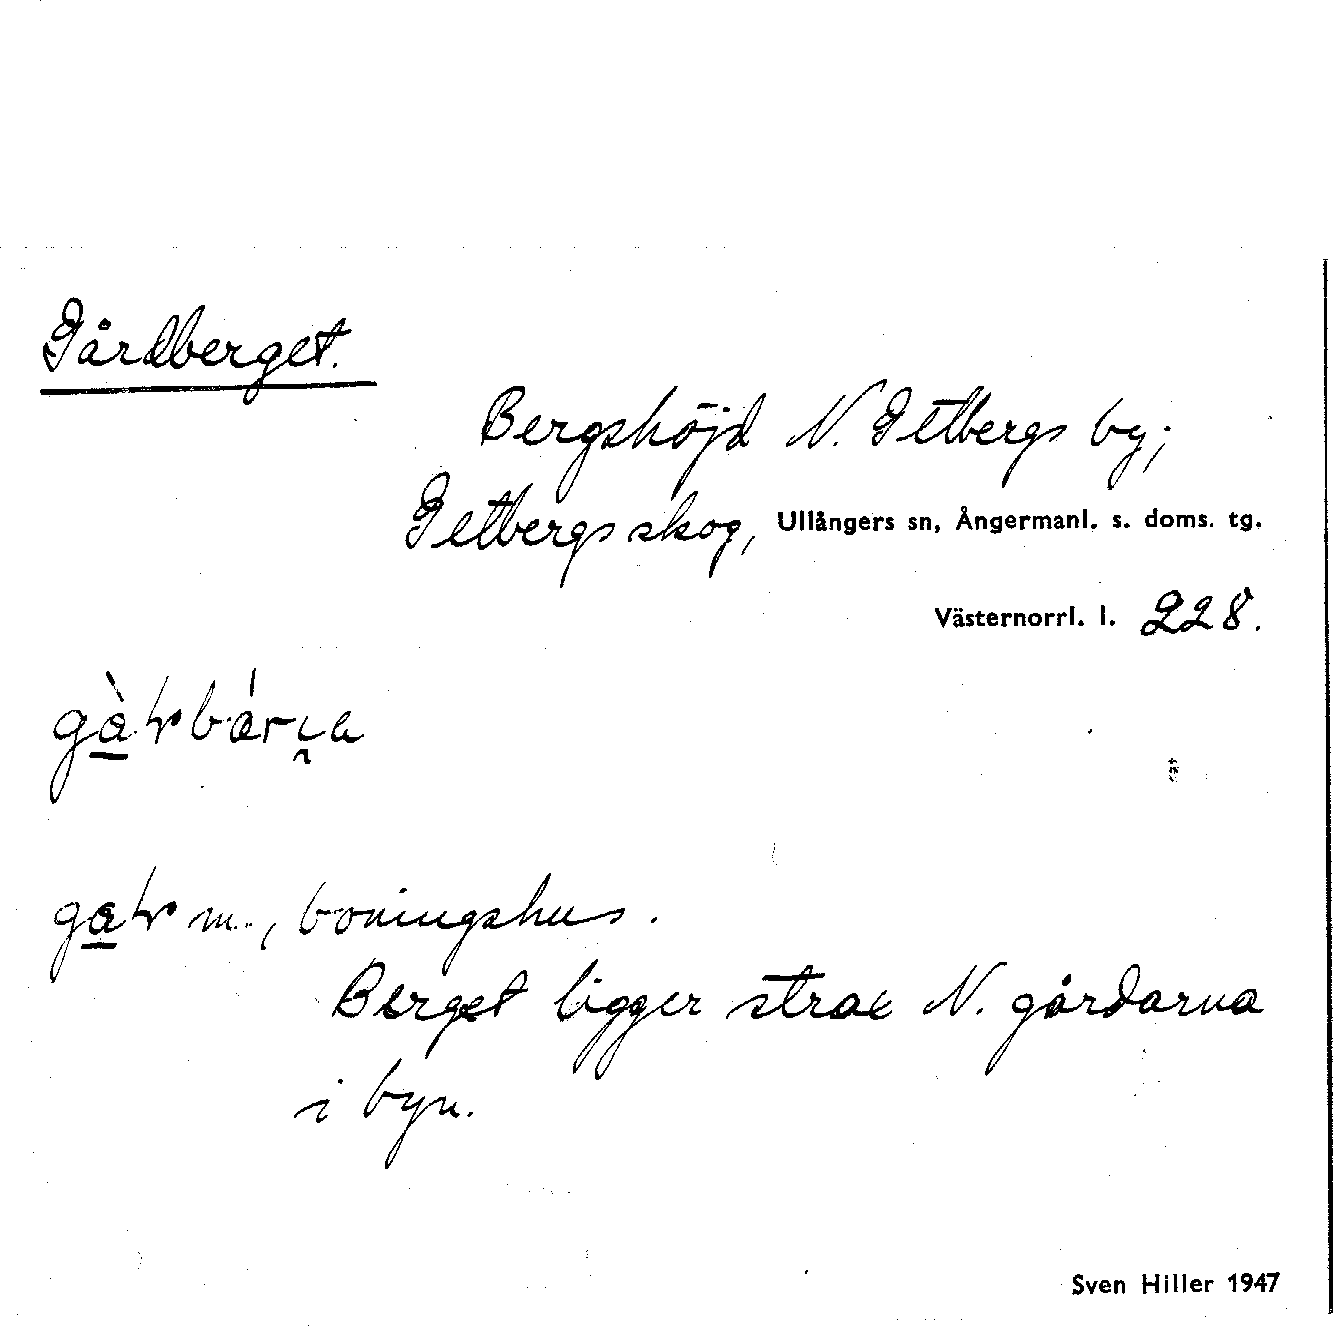 Gårdberget.
Bergshöjd N. Getbergs by;
Getbergs skog, Ullångers sn, Ångermanl. s. doms. tg.
Västernorrl. l. 228.
m., boningshus.
Berget ligger strax N. gårdarna
i byn.
Sven Hiller 1947